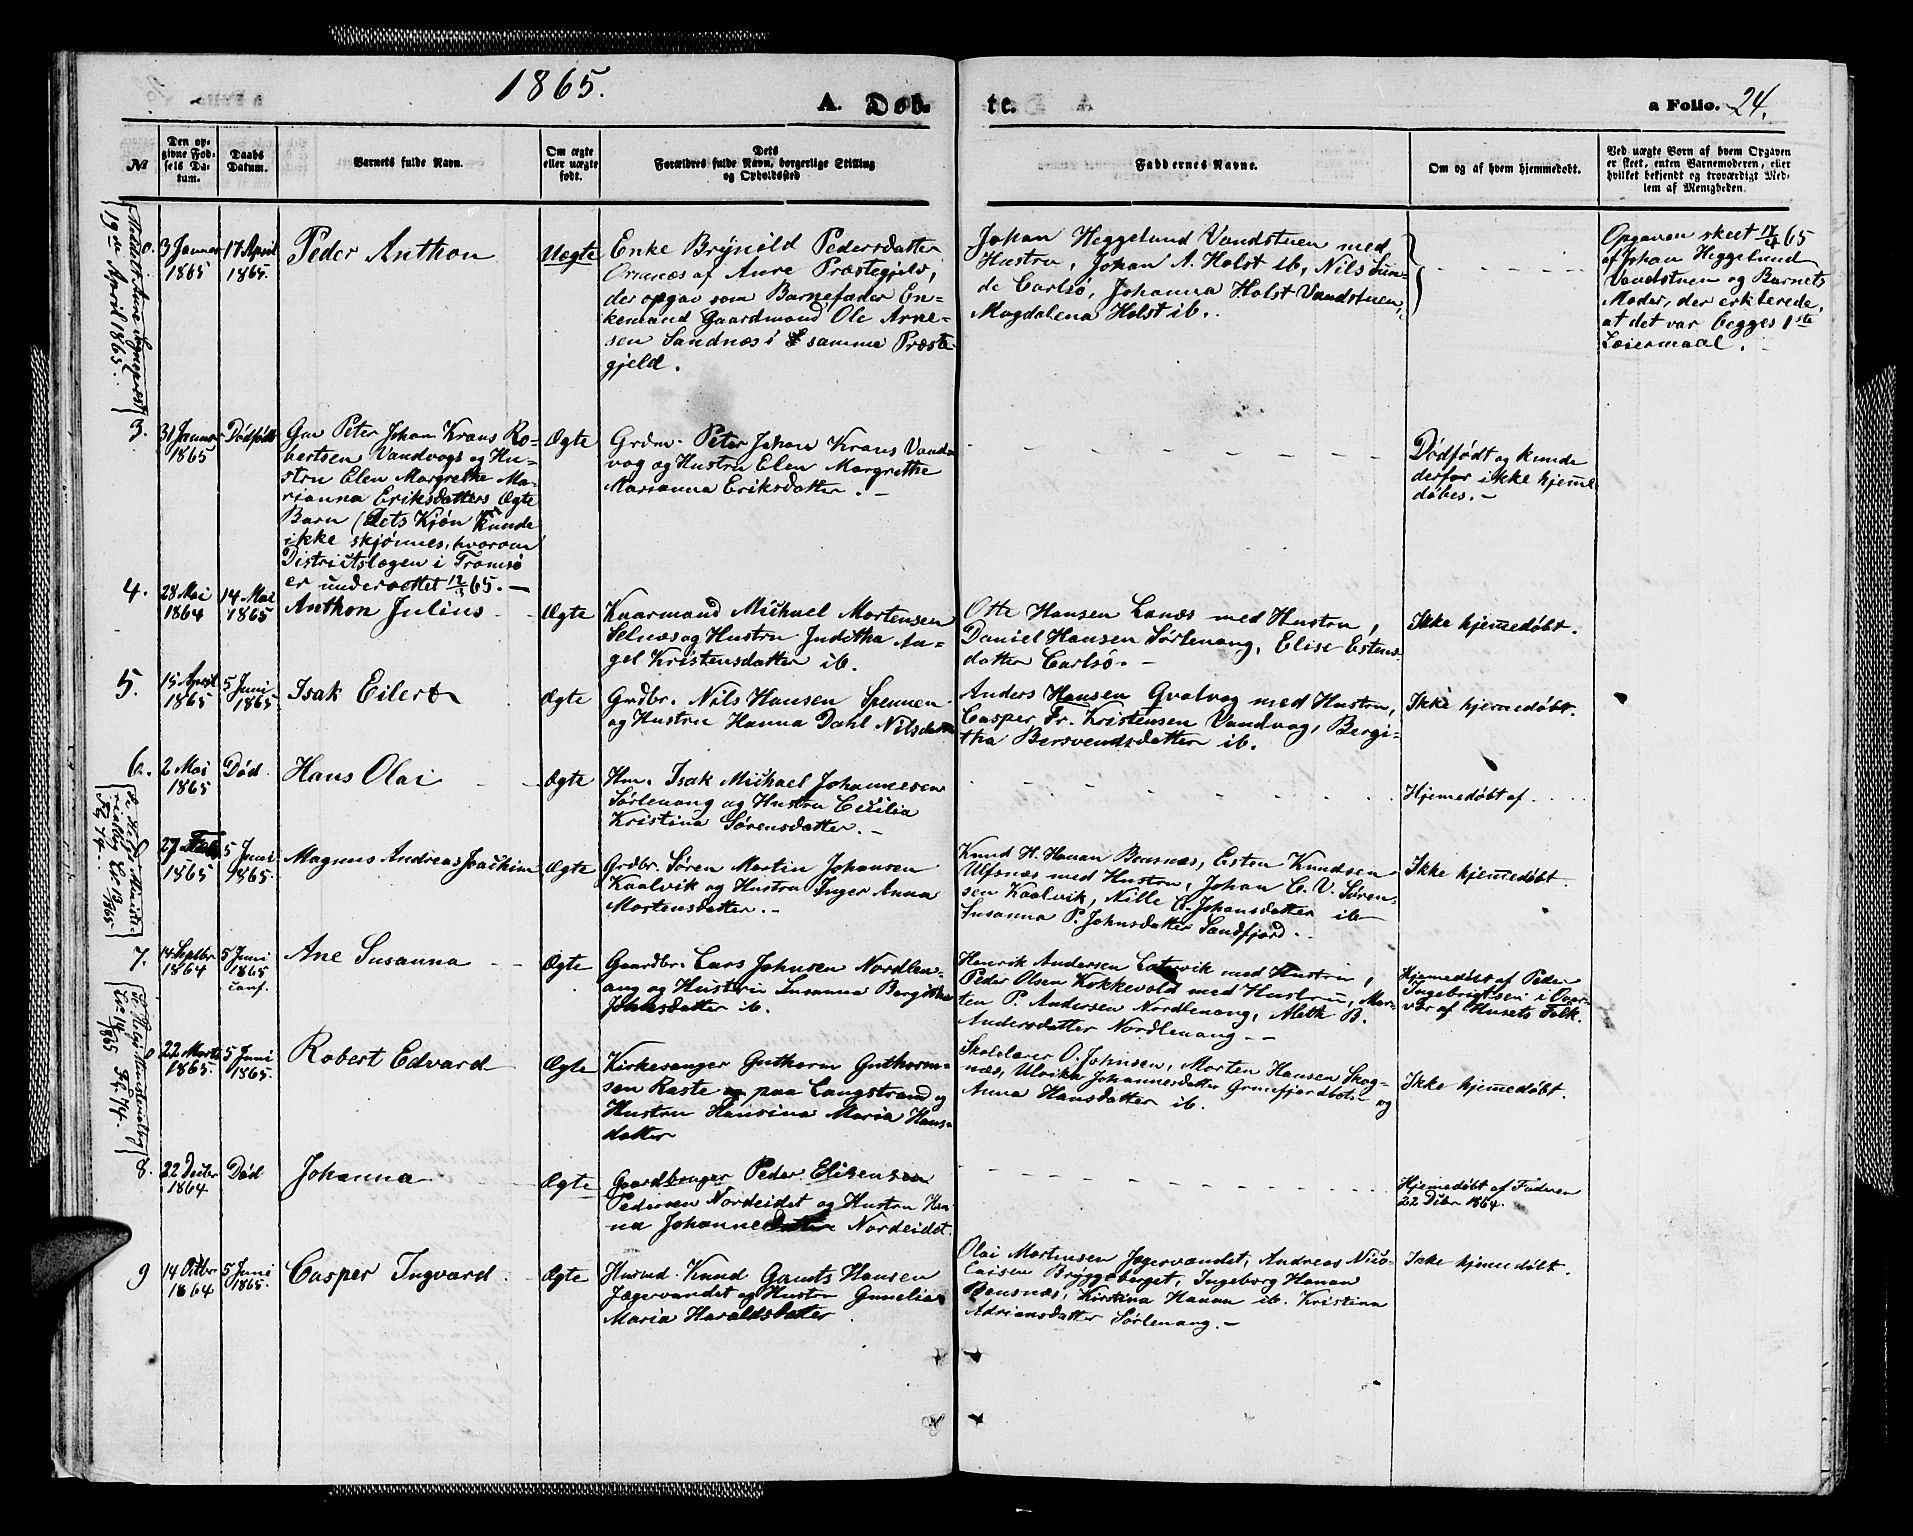 1865.
A. Døb
te.
a Folio. 24.
№
Den op-
givne Fød-
sels Da-
tum.
Daabs
Datum.
Barnets fulde Navn.
Om ægte
eller uægte
født.
Dets
Forældres fulde Navn, borgerlige Stilling
og Opholdssted
Faddernes Navne.
Om og af hvem hjemmedøbt.
Ved uægte Børn af hvem Opgaven
er skeet, enten Barnemoderen, eller
hvilket bekjendt og troværdigt Med-
lem af Menigheden.
19de April 1865.
3 Januar
1865
17 April
1865.
Peder Anthon
Uægte
Enke Brynild Pedersdatter
Ornnæs af Aure Præstegjeld,
der opgav som Barnefader En-
kemand Gaardmand Ole Arne-
sen Sandnæs i samme Præste-
gjeld.
Johan Heggelund Vandstuen med
Hustru, Johan A. Holst ib, Nils Sun-
de Carlsø, Johanna Holst Vandstuen,
Magdalena Holst ib.
Opgaven skeet 17/4 65
af Johan Heggelund
Vandstuen og Barnets
Moder, der erklerede,
at det var begges 1ste
Leiermaal.
3.
31 Januar
1865
Dødfødt
Gm Peter Johan Kraus Ro-
bertsen Vandvogs og Hu-
stru Elen Margrethe Ma-
rianna Eriksdatters Ægte
Barn (Dets Kjøn kunde
ikke skjønnes, hvorom
Districtslægen i Tromsø
er underrettet 12/ 65. —
Ægte
Grdm. Peter Johan Kraus Vand-
vog og Hustru Elen Margrethe
Marianna Eriksdatter. —
Dødfødt og kunde
derfor ikke hjeme
døbes. —
4.
28 Mai
1864
14 Mai
1865
Anthon Julius
Ægte
Kaarmand Michael Mortensen
Selnæs og Hustru Juditha An-
gel Kristensdatter ib.
Otte Hansen Lanæs med Hustru,
Daniel Hansen Sørlenang, Elise Estens-
datter Carlsø. —
Ikke hjemedøbt.
5.
15 April
1865
5 Juni
1865
Isak Eilert
Ægte
Grdbr. Nils Hansen Spennen
og Hustru Hanna Dahl Nilsdatter
Anders Hansen Gvalvog med Hustru,
Casper Fr. Kristensen Vandvog, Bergi-
tha Bersvendsdatter ib.
Ikke hjemedøbt.
6.
2 Mai
1865
Død.
Hans Olai
Ægte
Hm. Isak Michael Johannesen
Sørlenang og Hustru Cecilia
Kristina Sørensdatter. —
Hjemedøbt af
27
1865
5 Juni
1865.
Magnus Andreas Joachim
Ægte
Grdbr. Søren Martin Johansen
Kaalvik og Hustru Inger Anna
Mortensdatter. —
Knud H. Hanan Bensnæs, Esten Knudsen
Ulfsnæs med Hustru, Johan C. V. Søren-
sen Kaalvik, Nille C. Johansdatter ib
Susanna P. Johnsdatter Sandfjord. —
Ikke hjemedøbt.
7.
14 Septbr
1864
5 Juni
1865
conf.
Ane Susanna
Ægte
Gaardbr. Lars Johnsen Nordlen-
ang og Hustru Susanna Bergitha
Johnsdatter ib.
Henrik Andersen med Hustru,
Peder Olsen Kokkevold med Hustru, Mor-
ten P. Andersen Nordlenang, Aleth B.
Andersdatter Nordlenang —
Hjemedøbt af Peder
Ingebrigtsen i
vær af Husets Folk.
22 Marts
1865.
5 Juni
1865.
Robert Edvard
Ægte
Kirkesanger Guthorm Guthorm-
sen Raste paa Langstrand og
Hustru Hansina Maria Hans-
datter
Skolelærer O. Johnsen, Morten Hansen Skog-
næs, Ulrikka Johannesdatter Grunfjordbotn og
Anna Hansdatter ib.
Ikke hjemedøbt.
8.
22 Decbr
1864
Død
Johanna
Ægte
Gaardbruger Peder Elisensen
Pedersen Nordeidet og Hustru Han-
na Johannesdatter Nordeidet.
Hjemedøbt af Faderen
22 Dcbr 1864.
9
14 Octbr
1864
5 Juni
1865.
Casper Ingvard
Ægte
Husmd. Knud Gamts Hansen
Jægervandet og Hustru Gunelia
Maria Haraldsdatter
Olai Mortensen Jegervandet, Andreas Nico-
laisen Bryggeberget, Ingeborg Hanan
Bensnæs, Kirstina Hanan ib. Kristina
Adriansdatter Sørlenang. —
Ikke hjemedøbt.